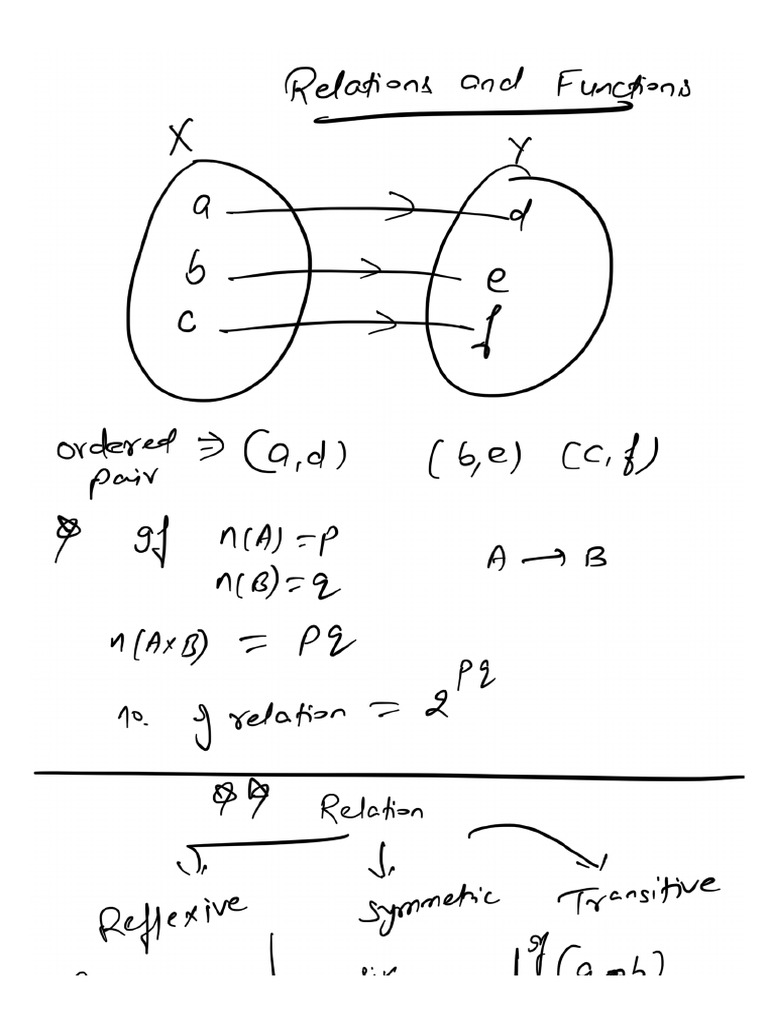 Relations and Functions
X Y
a d
b e
c f
ordered pair ⇒ (a,d) (b,e) (c,f)
If n(A) = p A → B
n(B) = q
n(A×B) = pq
no. of relation = 2^pq
Relation
Reflexive Symmetric Transitive
If (a